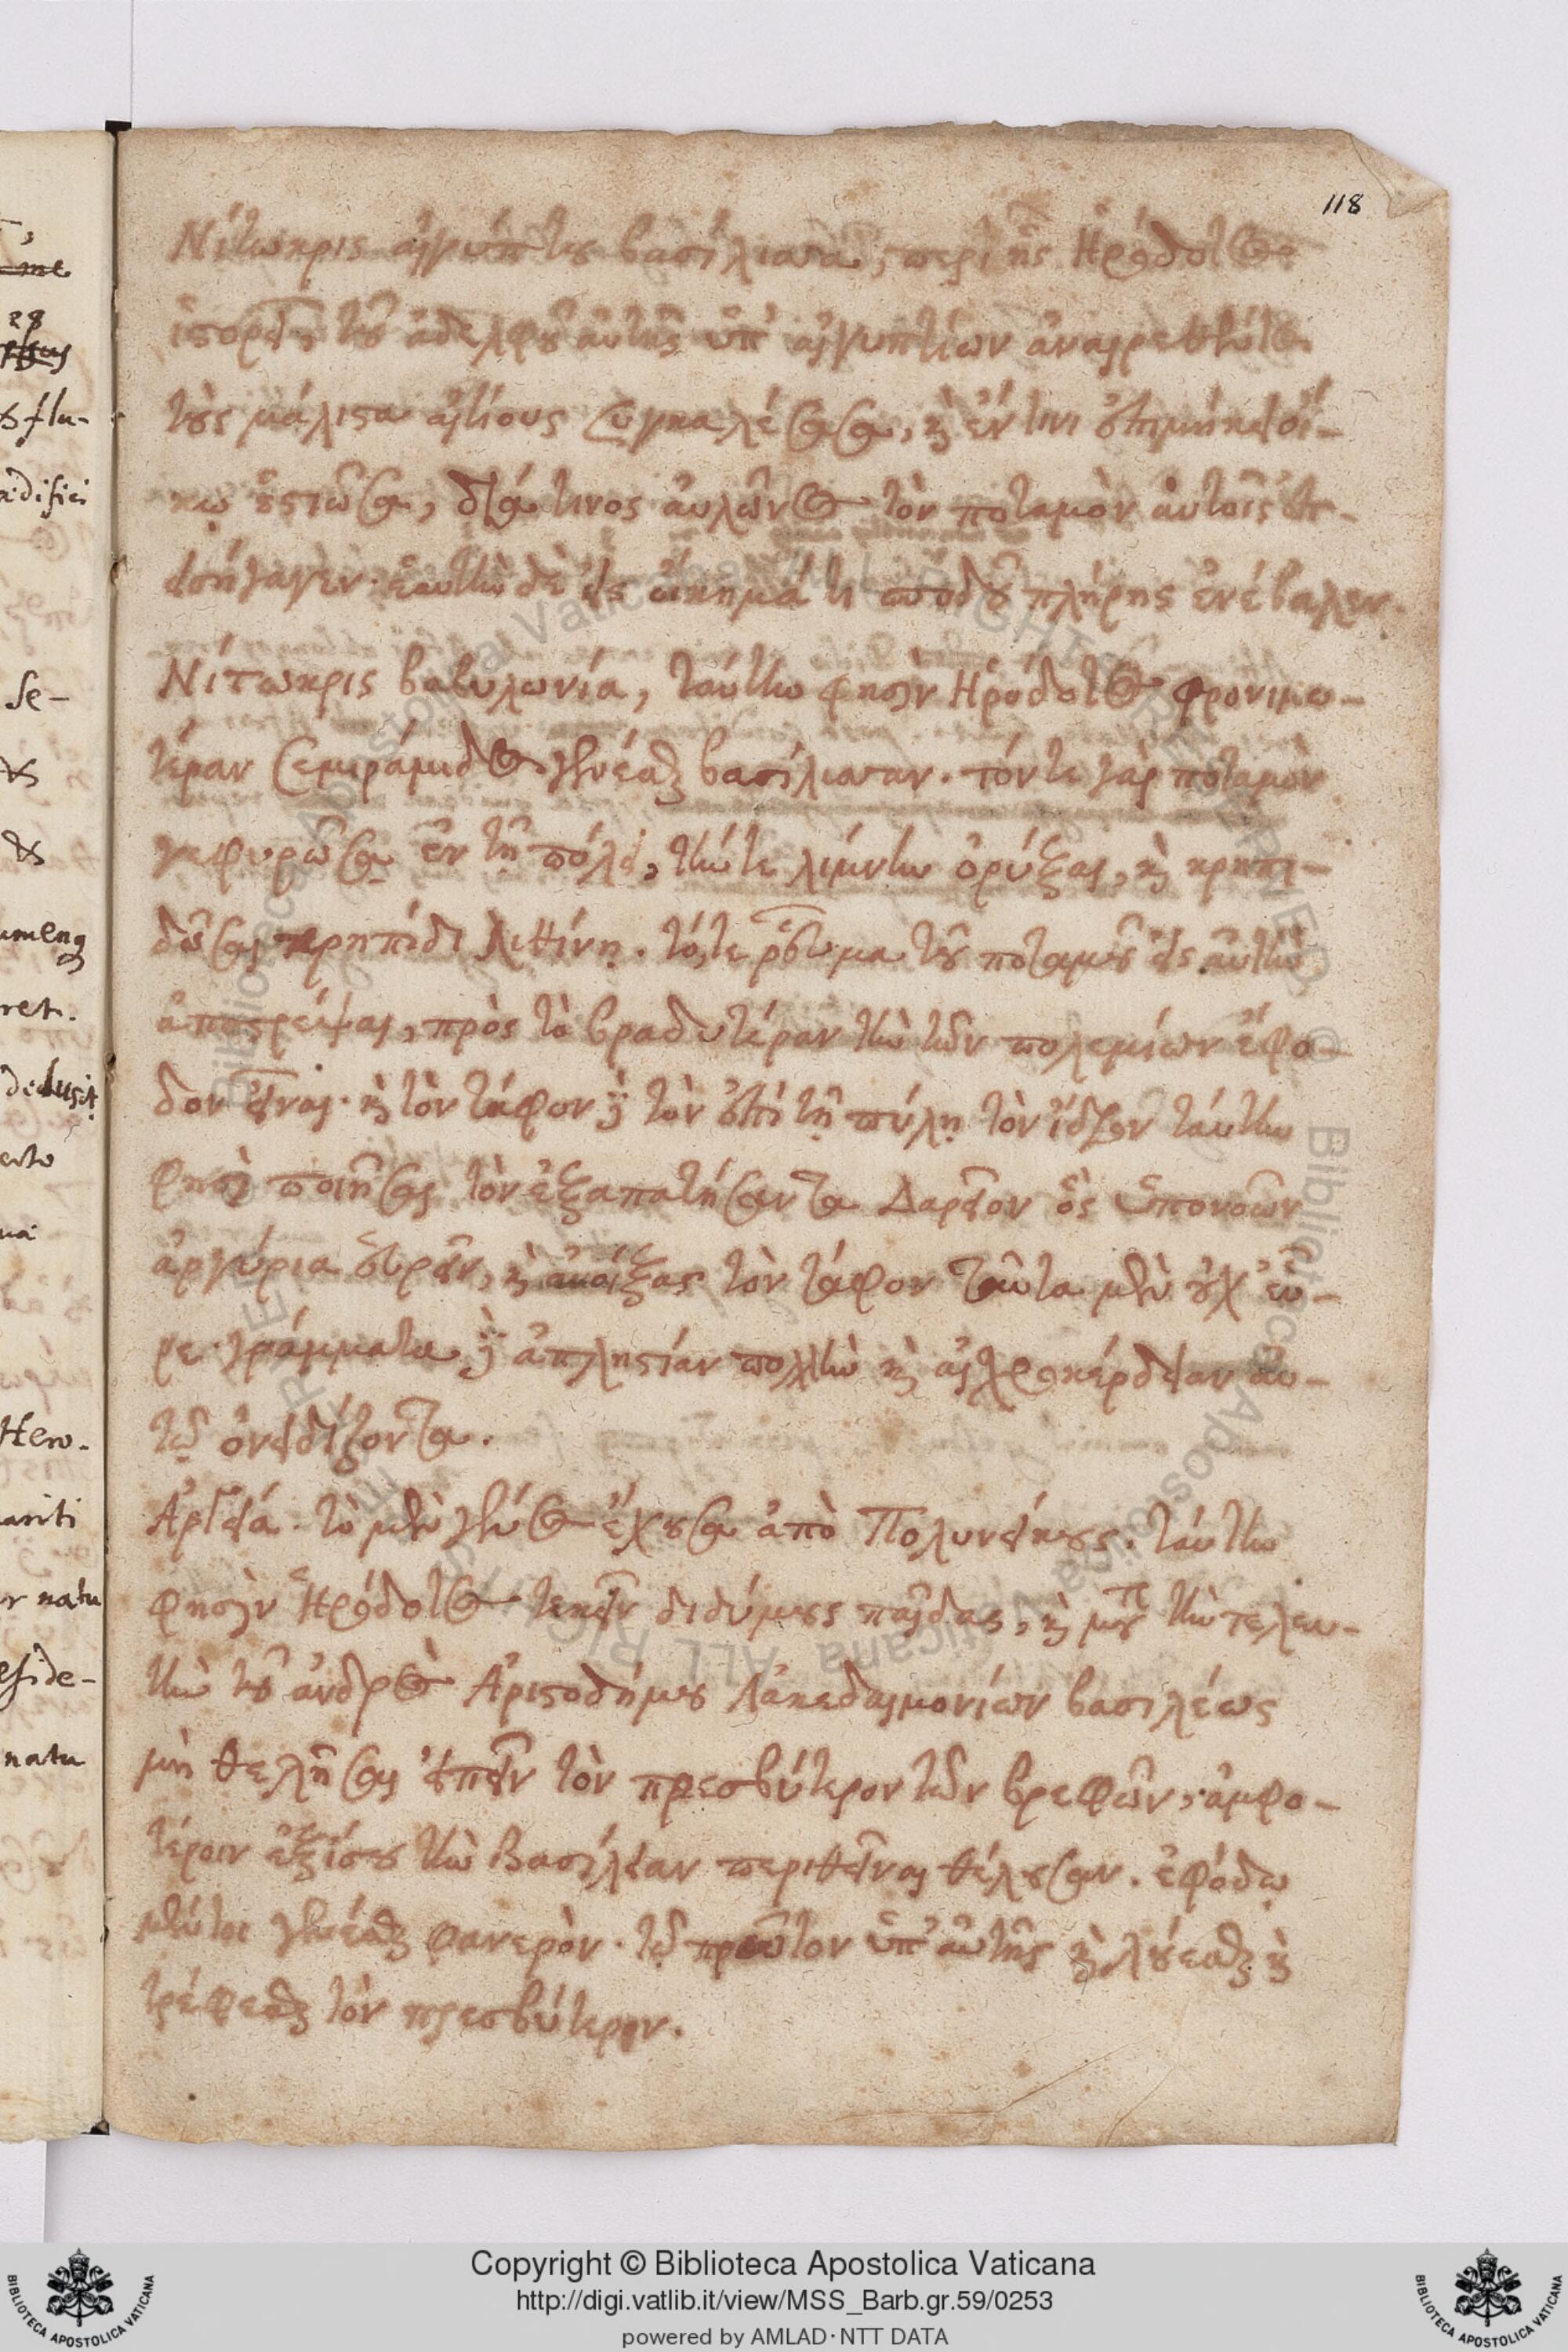 118
Νίτωκρις αἰγύπτου βασίλισσα, περὶ ἧς Ἡρόδοτος
ἱστορεῖ, τοῦ ἀδελφοῦ αὐτῆς ὑπ' αἰγυπτίων ἀναιρεθέντος
τοὺς μάλιστα αἰτίους συγκαλέσασα, καὶ ἔν τινι ἐπιμήκει οἴ-
κῳ ἑστιῶσα, διά τινος αὐλῶνος τὸν ποταμὸν αὐτοῖς ἐπ-
εισήγαγεν· ἑαυτὴν δὲ εἰς οἴκημά τι σποδοῦ πλήρης ἐνέβαλεν.
Νίτωκρις βαβυλωνία, ταύτην φησὶν Ἡρόδοτος φρονιμω-
τέραν Σεμιράμιδος γενέσθαι βασίλισσαν. τόν τε γὰρ ποταμὸν
γεφυρῶσα ἐν τῇ πόλει, τήν τε λίμνην ὀρύξαι, καὶ κρηπι-
δῶσαι κρηπίδι λιθίνῃ. τό, τε ῥεῦμα τοῦ ποταμοῦ εἰς αὐτὴν
ἀποστρέψαι, πρὸς τὸ βραδυτέραν τὴν τῶν πολεμίων ἔφο-
δον εἶναι· καὶ τὸν τάφον δὲ τὸν ἐπὶ τῇ πύλῃ τὸν ἴδιον ταύτην
φησὶ ποιῆσαι τὸν ἐξαπατήσαντα Δαρεῖον ὃς ὑπονοῶν
ἀργύρια εὑρεῖν, καὶ ἀνοίξας τὸν τάφον ταῦτα μὲν οὐχ' εὗ-
ρε· γράμματα δὲ ἀπληστίαν πολλὴν καὶ αἰσχροκέρδειαν αὐ-
τῷ ὀνειδίζοντα.
Ἀργεία. τὸ μὲν γένος ἔχουσα ἀπὸ Πολυνείκους. ταύτην
φησὶν Ἡρόδοτος τεκεῖν διδύμους παῖδας, καὶ μετὰ τὴν τελευ-
τὴν τοῦ ἀνδρὸς Ἀριστοδήμου Λακεδαιμονίων βασιλέως
μὴ θελῆσαι εἰπεῖν τὸν πρεσβύτερον τῶν βρεφῶν, ἀμφο-
τέροιν ἐξίσου τὴν βασιλείαν περιθεῖναι θέλουσαν. ἐφόδῳ
μέντοι γενέσθαι φανερὸν· τῷ πρῶτον ὑπ' αὐτῆς καὶ λούεσθαι καὶ
τρέφεσθαι τὸν πρεσβύτερον.
Copyright © Biblioteca Apostolica Vaticana
http://digi.vatlib.it/view/MSS_Barb.gr.59/0253
powered by AMLAD·NTT DATA